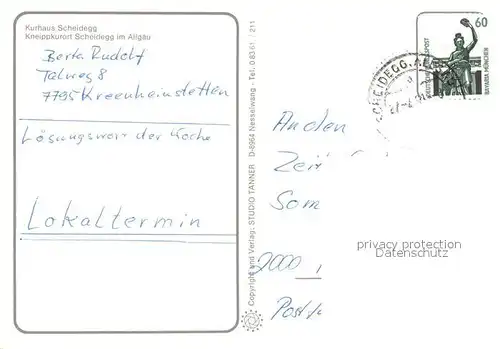 Kurhaus Scheidegg
Kneippkurort Scheidegg im Allgäu
Berta Rudolf
Talweg 8
7795 Kreenheinstetten
Lösungswort der Woche
Lokaltermin
Copyright und Verlag: STUDIO TANNER D-8964 Nesselwang - Tel. 08361 / 211
60
DEUTSCHE BUNDESPOST
BAVARIA MÜNCHEN
SCHEIDEGG, AL
An den
Zei
Som
2000
Post
privacy protection
Datenschutz